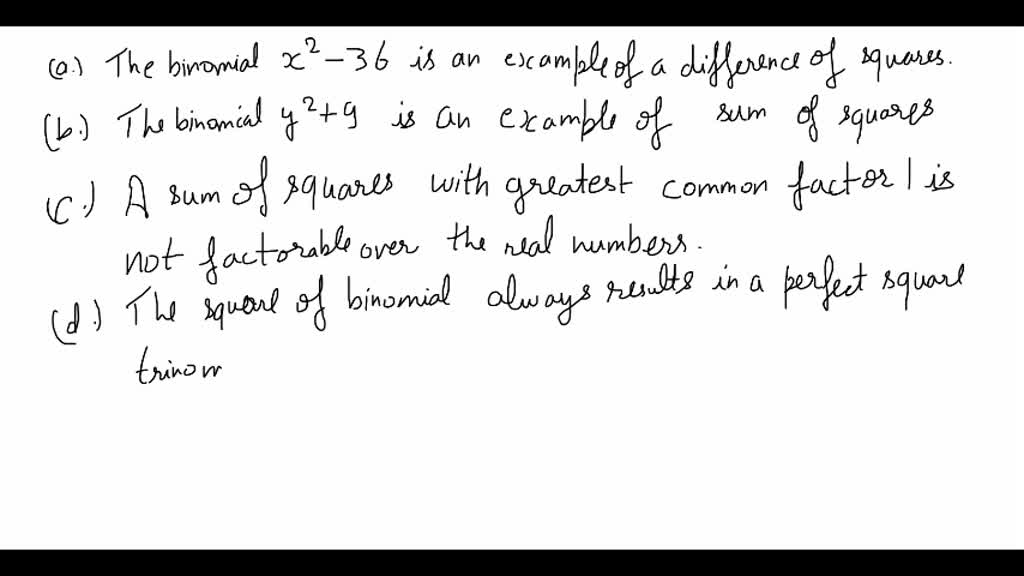 (a.) The binomial x² - 36 is an example of a difference of squares.
(b.) The binomial y² + 9 is an example of sum of squares
(c.) A sum of squares with greatest common factor 1 is
not factorable over the real numbers.
(d.) The square of binomial always results in a perfect square
trinom